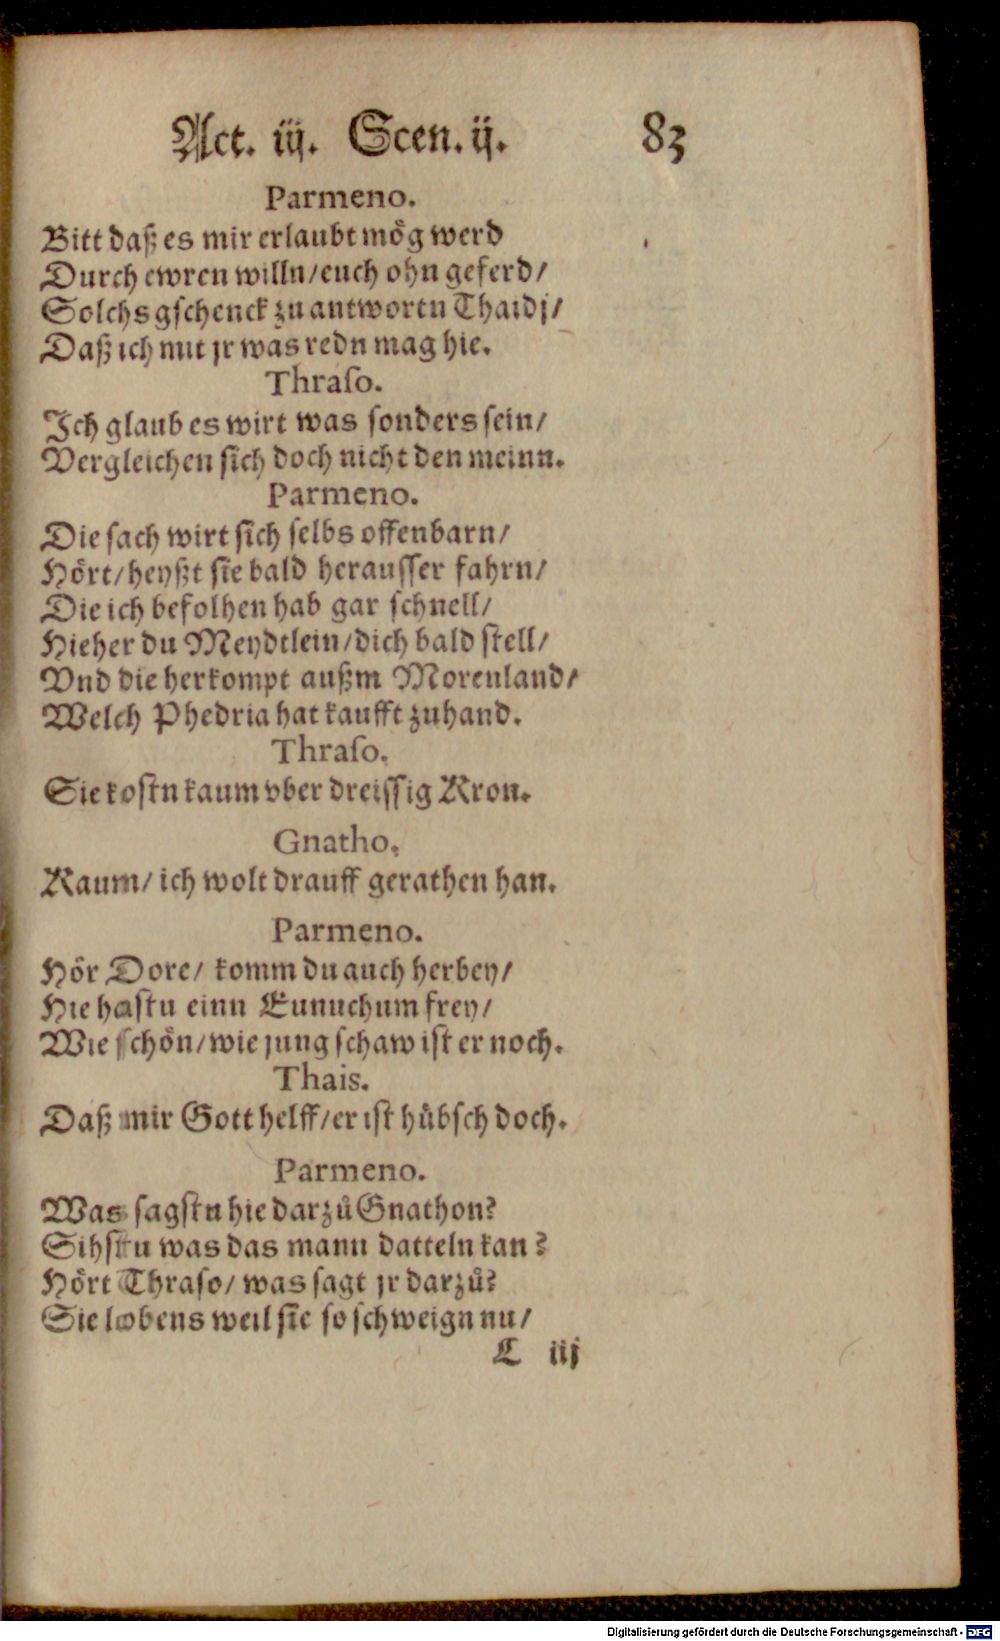 Act. iij. Scen. ij. 83
Parmeno.
Bitt daß es mir erlaubt mög werd
Durch ewren willn/euch ohn geferd/
Solchs gschenck zu antwortn Thaidj/
Daß ich mit jr was redn mag hie.
Thraso.
Ich glaub es wirt was sonders sein/
Vergleichen sich doch nicht den meinn.
Parmeno.
Die sach wirt sich selbs offenbarn/
Hört/heyßt sie bald herausser fahrn/
Die ich befolhen hab gar schnell/
Hieher du Meydtlein/dich bald stell/
Vnd die herkompt außm Morenland/
Welch Phedria hat kaufft zuhand.
Thraso.
Sie kostn kaum vber dreissig Kron.
Gnatho.
Kaum/ ich wolt drauff gerathen han.
Parmeno.
Hör Dore/ komm du auch herbey/
Hie hastu einn Eunuchum frey/
Wie schön/wie jung schaw ist er noch.
Thais.
Daß mir Gott helff/er ist hübsch doch.
Parmeno.
Was sagstu hie darzů Gnathon?
Sihstu was das mann datteln kan?
Hört Thraso/ was sagt jr darzů?
Sie lobens weil sie so schweign nu/
L iij
Digitalisierung gefördert durch die Deutsche Forschungsgemeinschaft - DFG